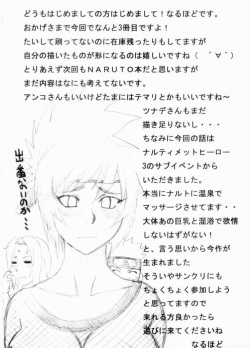 どうもはじめましての方はじめまして！なるほどです。
おかげさまで今回でなんと3冊目ですよ！
たいして刷ってないのに在庫残ったりもしてますが
自分の描いたものが形になるのは嬉しいですね（ ´∀｀）
とりあえず次回もＮＡＲＵＴＯ本だと思いますが
まだ内容はなにも考えてないです。
アンコさんもいいけどたまにはテマリとかもいいですね～
ツナデさんもまだ
描き足りないし・・・
ちなみに今回の話は
ナルティメットヒーロー
3のサブイベントから
いただきました。
本当にナルトに温泉で
マッサージさせてます・・・
大体あの巨乳と混浴で欲情
しないはずがない！
と、言う思いから今作が
生まれました
そういやサンクリにも
ちょくちょく参加しよう
と思ってますので
来れる方良かったら
遊びに来てくださいね
なるほど
出番ないのか・・・